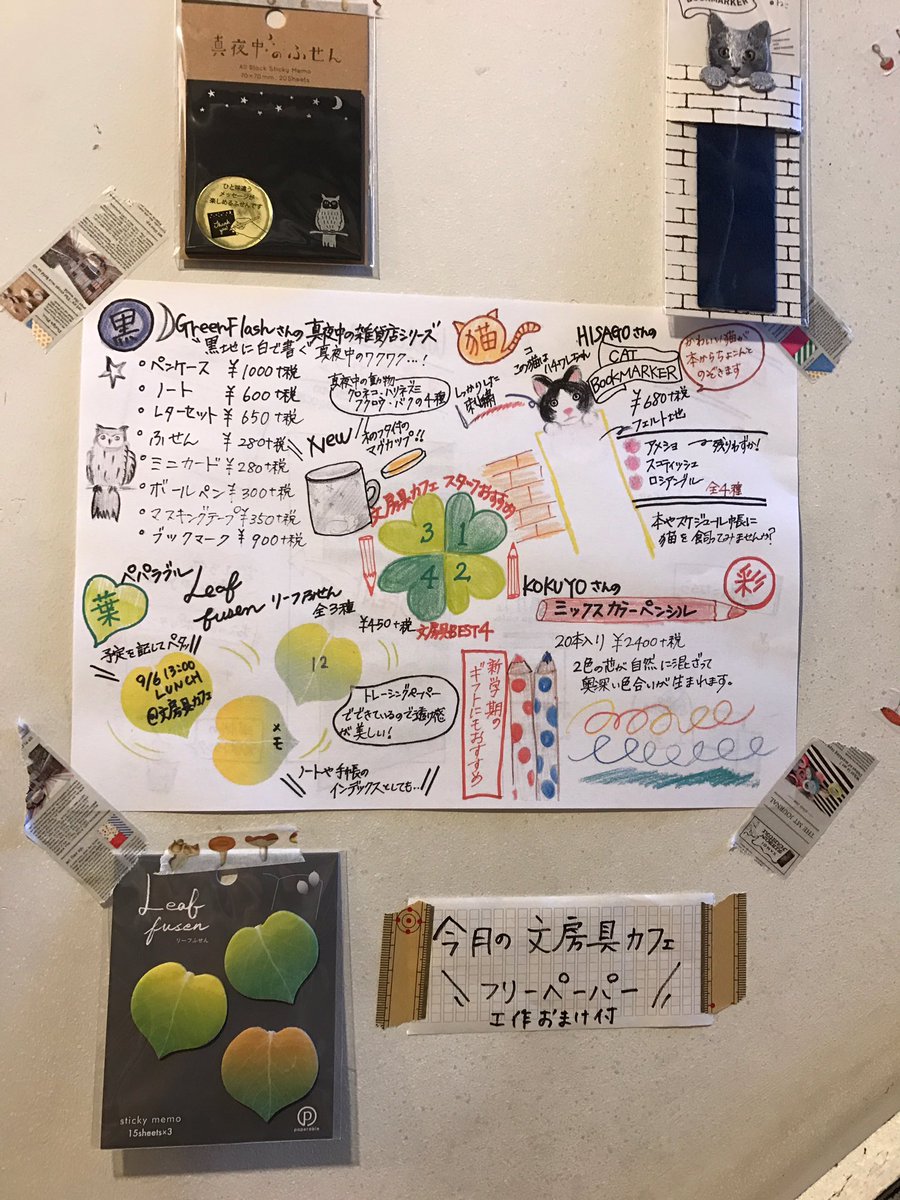 真夜中のふせん
All Black Sticky Memo
70×70mm, 20Sheets
ひと味違う
メッセージが
楽しめるふせんです
Thank you!
BOOKMARKER
ねこ
黒
GreenFlashさんの 真夜中の雑貨店シリーズ
黒地に白で書く 真夜中のワクワク…!
・ペンケース ¥1000+税
・ノート ¥600+税
・レターセット ¥650+税
・ふせん ¥280+税
・ミニカード ¥280+税
・ボールペン ¥300+税
・マスキングテープ ¥350+税
・ブックマーク ¥900+税
真夜中の動物…
クロネコ・ハリネズミ
フクロウ・バクの4種
New!
木のフタ付の
マグカップ!!
猫
HISAGOさんの
CAT
BookMARKER
この猫はハチワレちゃん
しっかりした
刺繍
かわいい猫が
本からちょこんと
のぞきます
¥680+税
フェルト地
アメショ
残りわずか!
スコティッシュ
ロシアンブルー
全4種
本やスケジュール帳に
猫を飼ってみませんか?
文房具カフェ スタッフおすすめ
3 1
4 2
文房具BEST4
葉
ペパラブル
Leaf
fusen リーフふせん
全3種
¥450+税
予定を記してペタッ!!
9/6 13:00
LUNCH
@文房具カフェ
12
メモ
トレーシングペーパー
でできているので透け感
が美しい!
ノートや手帳の
インデックスとしても…
彩
KOKUYOさんの
ミックスカラーペンシル
20本入り ¥2400+税
2色の芯が自然に混ざって
奥深い色合いが生まれます。
新学期の
ギフトにもおすすめ
THE MT JOURNAL
Leaf
fusen
リーフふせん
sticky memo
15sheets×3
paperable
今月の文房具カフェ
フリーペーパー
工作おまけ付